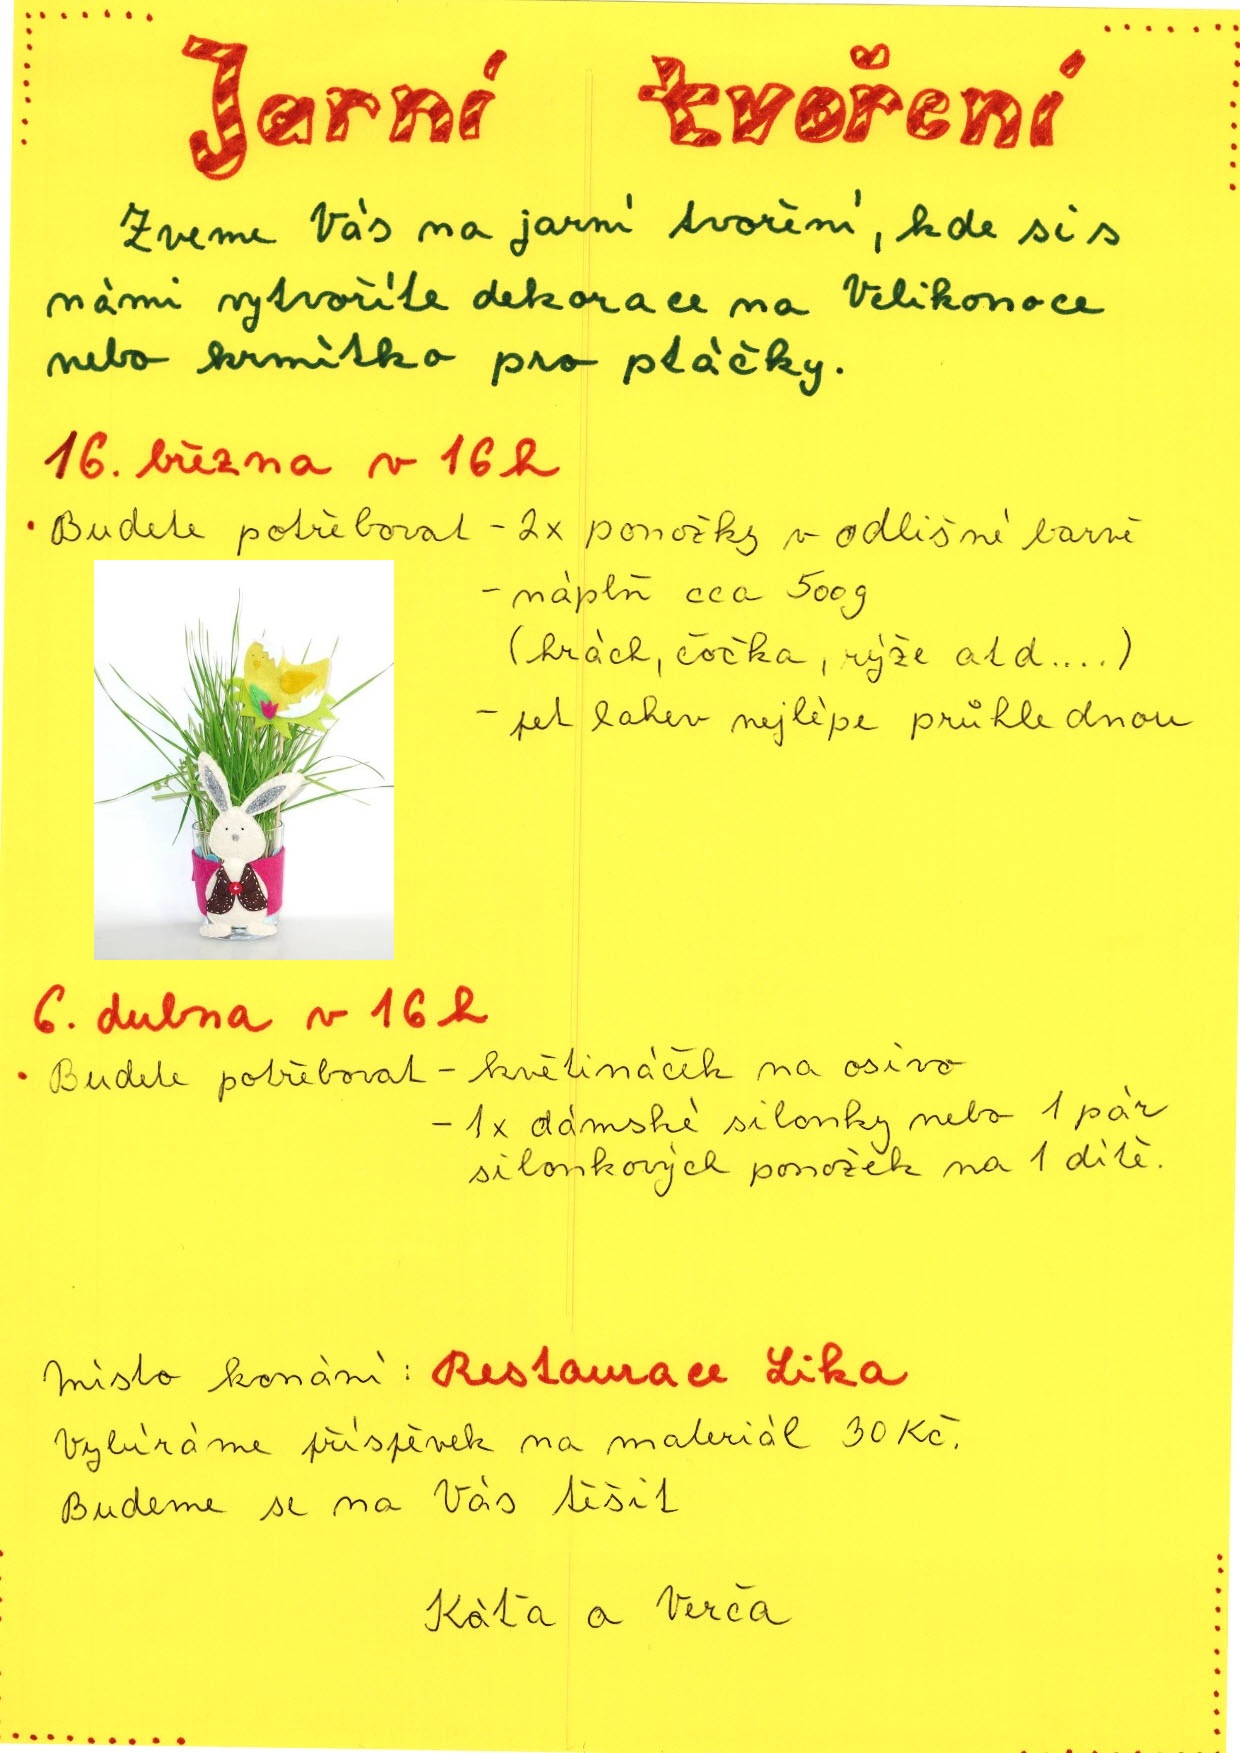 Jarní tvoření
Zveme Vás na jarní tvoření, kde si s
námi vytvoříte dekorace na Velikonoce
nebo krmítko pro ptáčky.
16. března v 16h
• Budete potřebovat - 2x ponožky v odlišné barvě
- náplň cca 500g
(hrách, čočka, rýže atd....)
- pet lahev nejlépe průhlednou
6. dubna v 16h
• Budete potřebovat - květináček na osivo
- 1x dámské silonky nebo 1 pár
silonkových ponožek na 1 dítě.
Místo konání: Restaurace Lika
Vybíráme příspěvek na materiál 30 Kč.
Budeme se na Vás těšit
Káťa a Verča